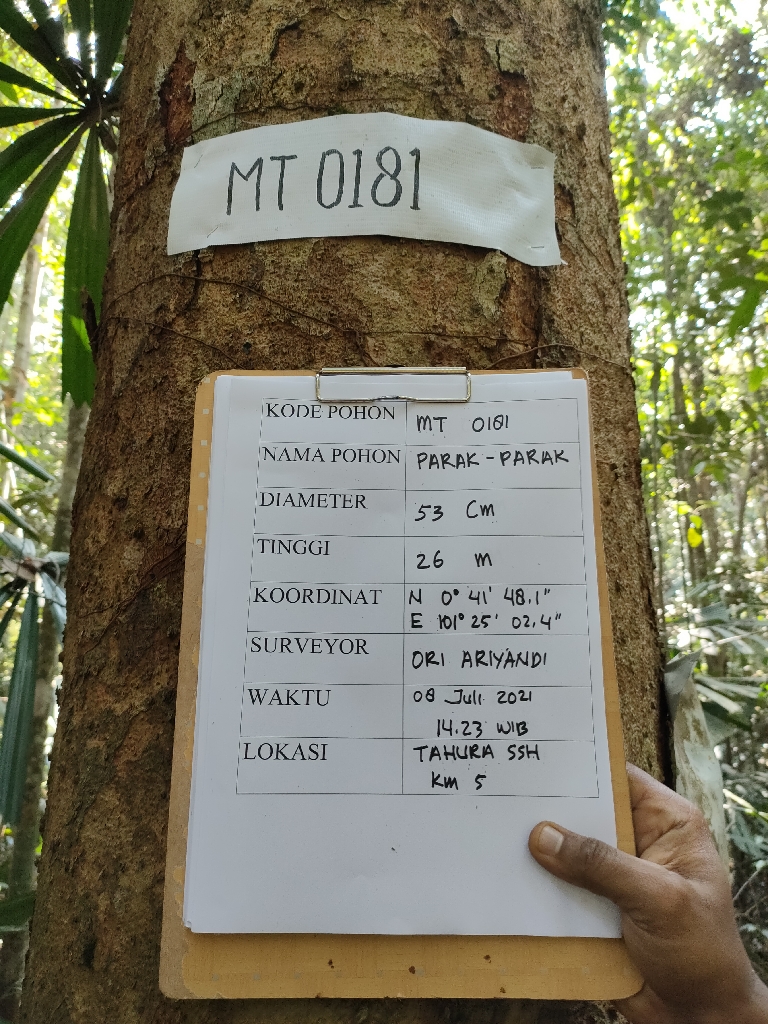 MT 0181
KODE POHON MT 0181
NAMA POHON PARAK - PARAK
DIAMETER 53 Cm
TINGGI 26 m
KOORDINAT N 0° 41' 48,1"
E 101° 25' 02,4"
SURVEYOR ORI ARIYANDI
WAKTU 08 Juli 2021
14.23 WIB
LOKASI TAHURA SSH
Km 5